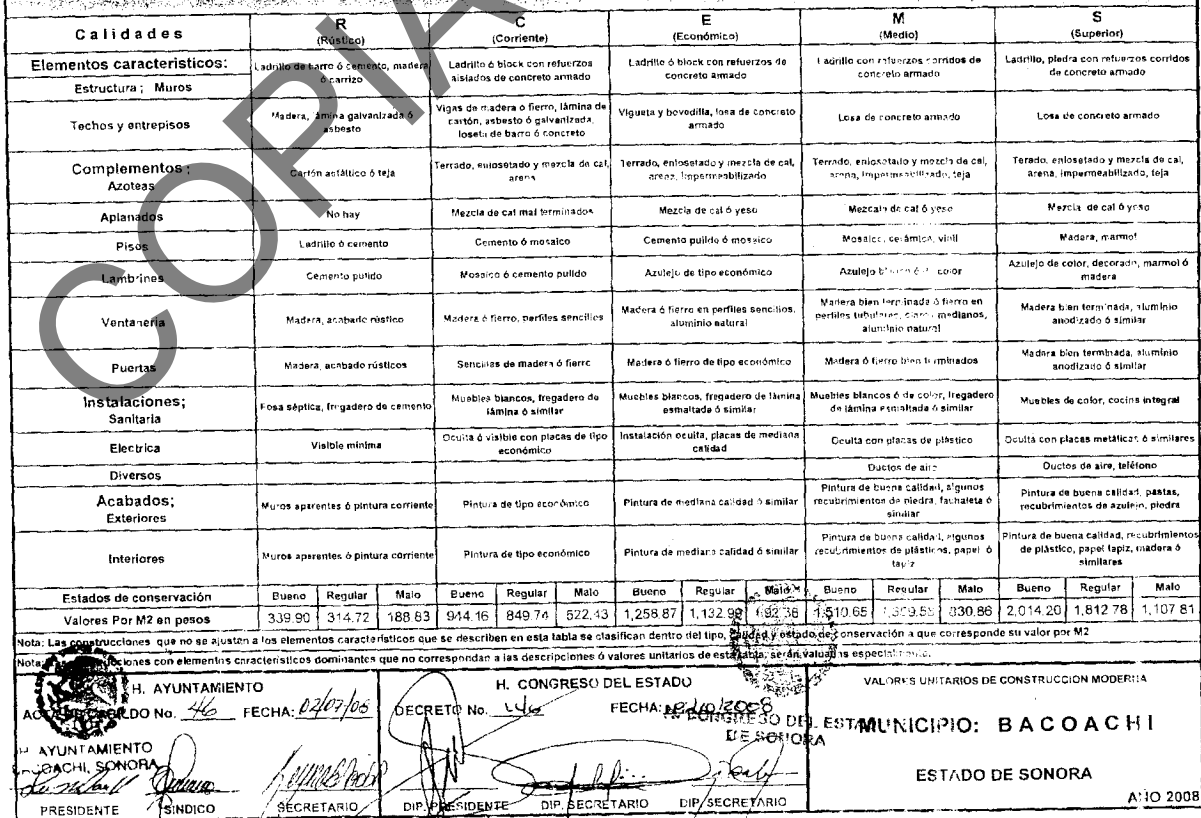 COPIA
Calidades R C E M S
(Rústico) (Corriente) (Económico) (Medio) (Superior)
Elementos caracteristicos:
Estructura ; Muros
Ladrillo de barro ó cemento, madera ó carrizo
Ladrillo ó block con refuerzos aislados de concreto armado
Ladrillo ó block con refuerzos de concreto armado
Ladrillo con refuerzos corridos de concreto armado
Ladrillo, piedra con refuerzos corridos de concreto armado
Techos y entrepisos
Madera, lámina galvanizada ó asbesto
Vigas de madera o fierro, lámina de cartón, asbesto ó galvanizada, loseta de barro ó concreto
Vigueta y bovedilla, losa de concreto armado
Losa de concreto armado
Losa de concreto armado
Complementos ;
Azoteas
Cartón asfáltico ó teja
Terrado, enlosetado y mezcla de cal, arena
Terrado, enlosetado y mezcla de cal, arena, impermeabilizado
Terrado, enlosetado y mezcla de cal, arena, impermeabilizado, teja
Terado, enlosetado y mezcla de cal, arena, impermeabilizado, teja
Aplanados
No hay
Mezcla de cal mal terminados
Mezcla de cal ó yeso
Mezcaln de cal ó yeso
Mezcla de cal ó yeso
Pisos
Ladrillo ó cemento
Cemento ó mosaico
Cemento pulido ó mosaico
Mosaico, cerámica, vinil
Madera, marmol
Lambrines
Cemento pulido
Mosaico ó cemento pulido
Azulejo de tipo económico
Azulejo color
Azulejo de color, decorado, marmol ó madera
Ventaneria
Madera, acabado rústico
Madera ó fierro, perfiles sencillos
Madera ó fierro en perfiles sencillos, aluminio natural
Madera bien terminada ó fierro en perfiles tubulares, claros medianos, aluminio natural
Madera bien terminada, aluminio anodizado ó similar
Puertas
Madera, acabado rústicos
Sencillas de madera ó fierro
Madera ó fierro de tipo económico
Madera ó fierro bien terminados
Madera bien terminada, aluminio anodizado ó similar
Instalaciones;
Sanitaria
Fosa séptica, fregadero de cemento
Muebles blancos, fregadero de lámina ó similar
Muebles blancos, fregadero de lámina esmaltada ó similar
Muebles blancos ó de color, fregadero de lámina esmaltada ó similar
Muebles de color, cocina integral
Electrica
Visible minima
Oculta ó visible con placas de tipo económico
Instalación oculta, placas de mediana calidad
Oculta con placas de plástico
Oculta con placas metálicas ó similares
Diversos
Ductos de aire
Ductos de aire, teléfono
Acabados;
Exteriores
Muros aparentes ó pintura corriente
Pintura de tipo económico
Pintura de mediana calidad ó similar
Pintura de buena calidad, algunos recubrimientos de piedra, fachaleta ó similar
Pintura de buena calidad, pastas, recubrimientos de azulejo, piedra
Interiores
Muros aparentes ó pintura corriente
Pintura de tipo económico
Pintura de mediana calidad ó similar
Pintura de buena calidad, algunos recubrimientos de plásticos, papel ó tapiz
Pintura de buena calidad, recubrimientos de plástico, papel tapiz, madera ó similares
Estados de conservación Bueno Regular Malo Bueno Regular Malo Bueno Regular Malo Bueno Regular Malo Bueno Regular Malo
Valores Por M2 en pesos 339.90 314.72 188.83 944.16 849.74 522.43 1,258.87 1,132.99 1,510.65 830.86 2,014.20 1,812.78 1,107.81
Nota: Las construcciones que no se ajustan a los elementos caracteristicos que se describen en esta tabla se clasifican dentro del tipo, calidad y estado de conservación a que corresponde su valor por M2
Nota: construcciones con elementos caracteristicos dominantes que no correspondan a las descripciones ó valores unitarios de esta tabla, serán
H. AYUNTAMIENTO
CABILDO No. 46 FECHA: 02/07/08
H. AYUNTAMIENTO
BACOACHI, SONORA
PRESIDENTE SINDICO SECRETARIO
H. CONGRESO DEL ESTADO
DECRETO No. FECHA:
H. CONGRESO DEL ESTADO
DE SONORA
DIP. PRESIDENTE DIP. SECRETARIO DIP. SECRETARIO
VALORES UNITARIOS DE CONSTRUCCION MODERNA
MUNICIPIO: BACOACHI
ESTADO DE SONORA
AÑO 2008